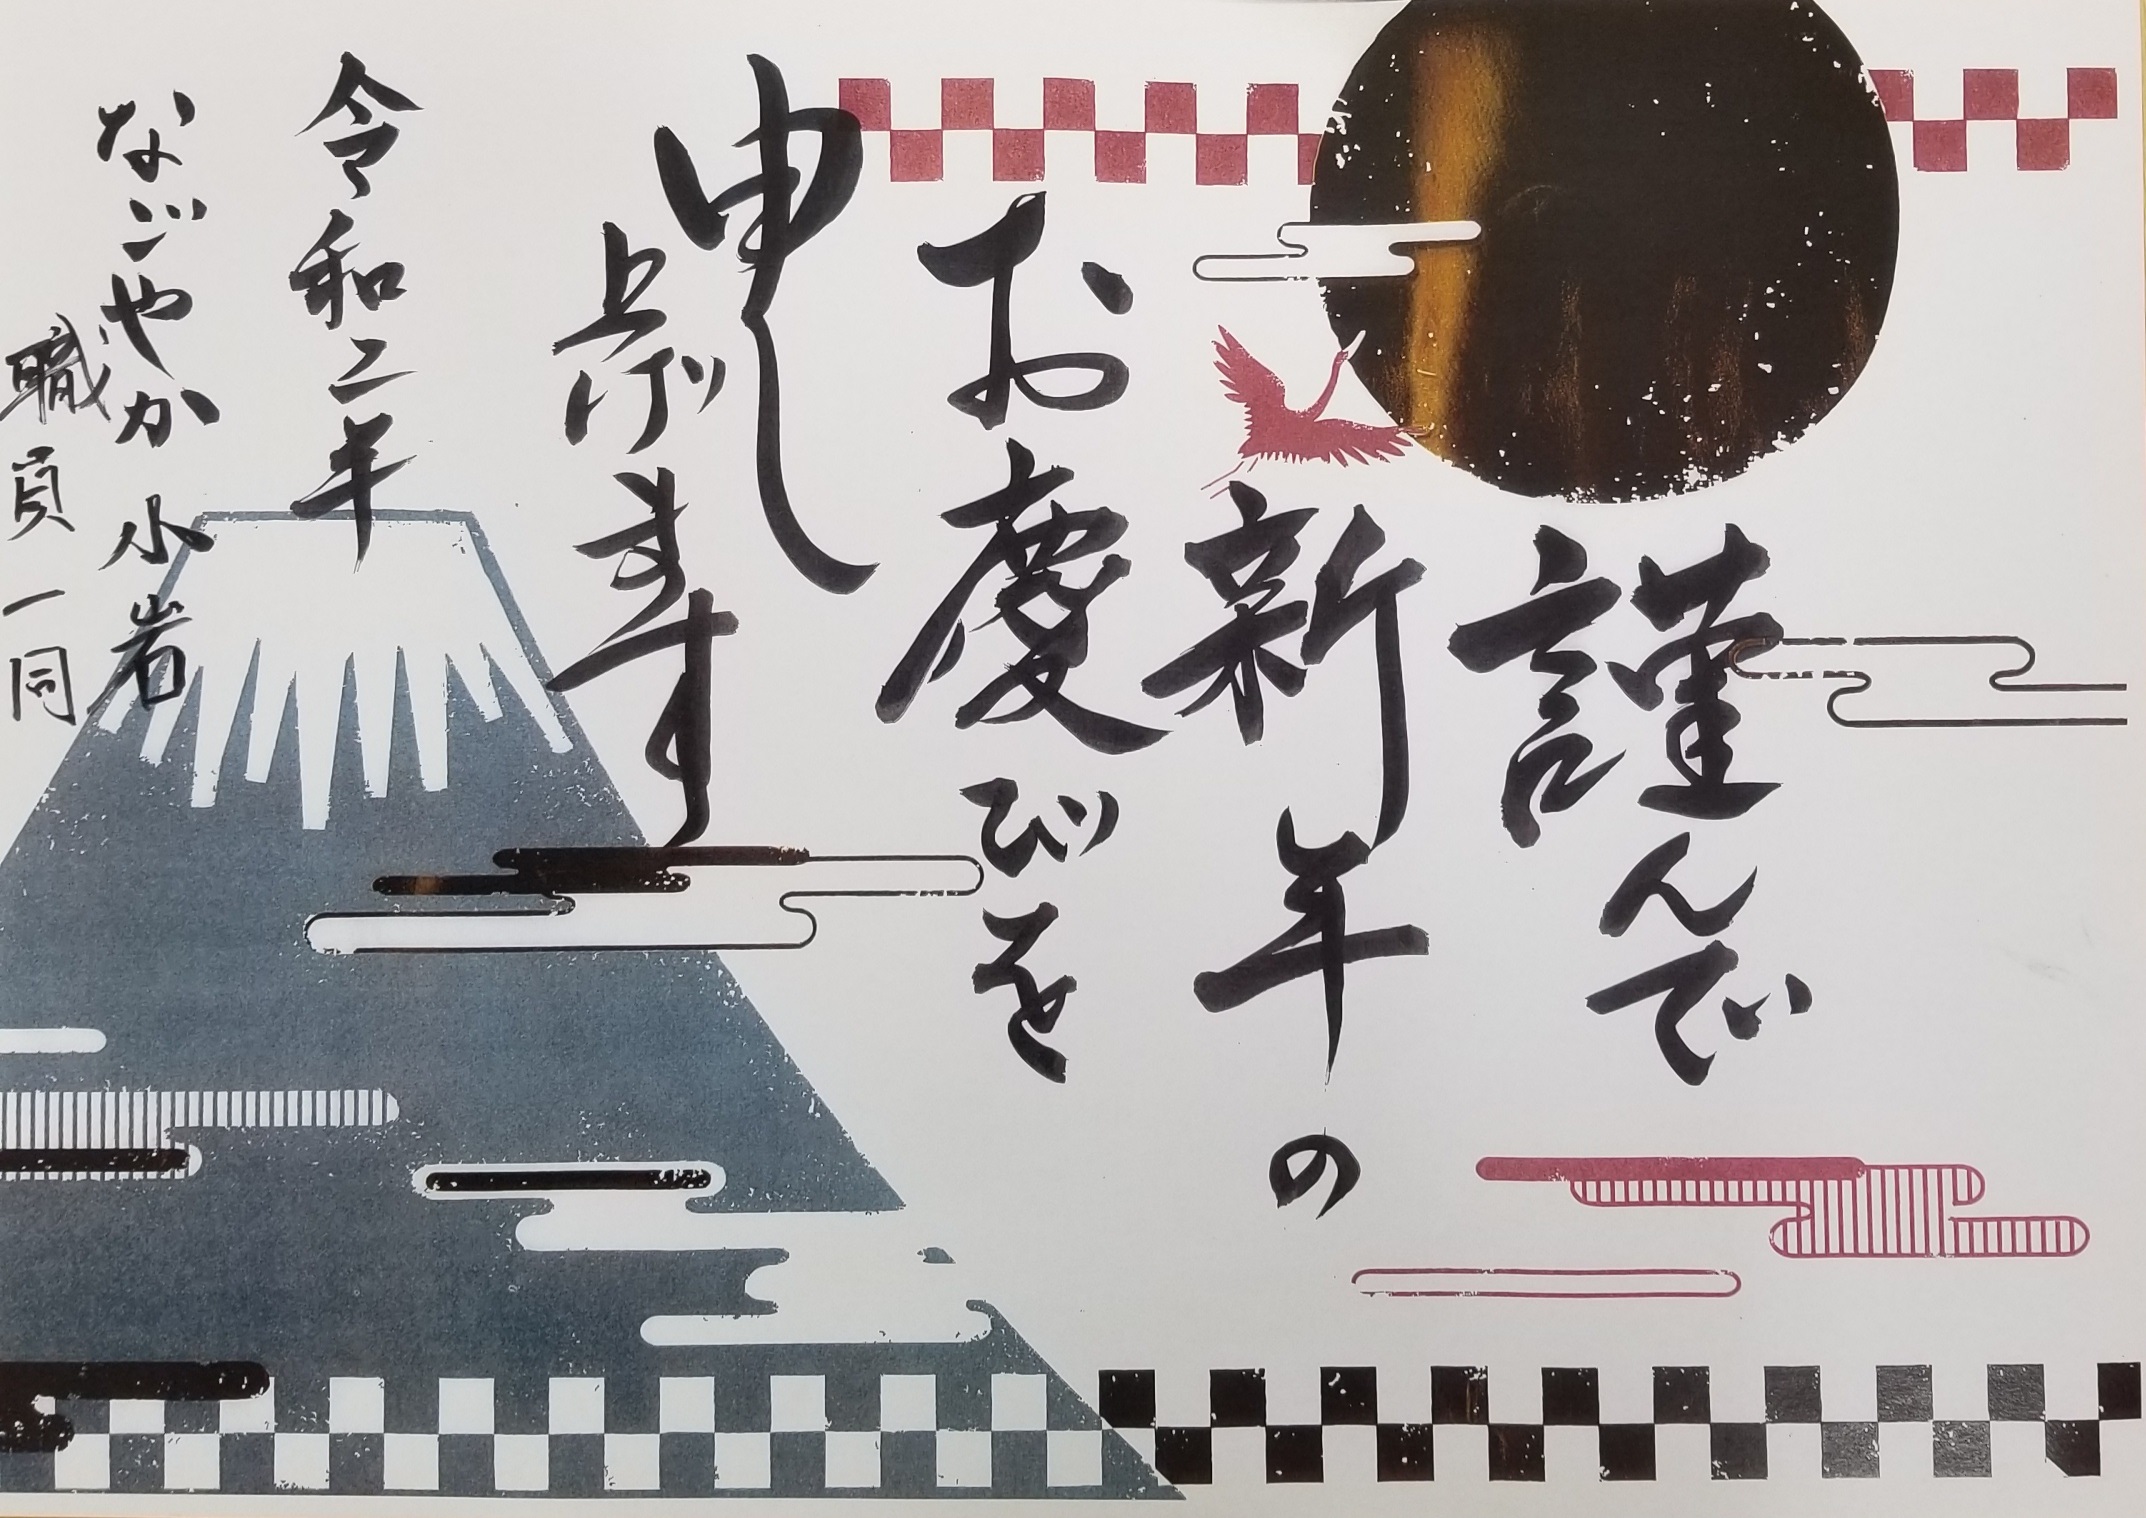 謹んで
新年の
お慶びを
申し
上げます
令和二年
なごやか小岩
職員一同